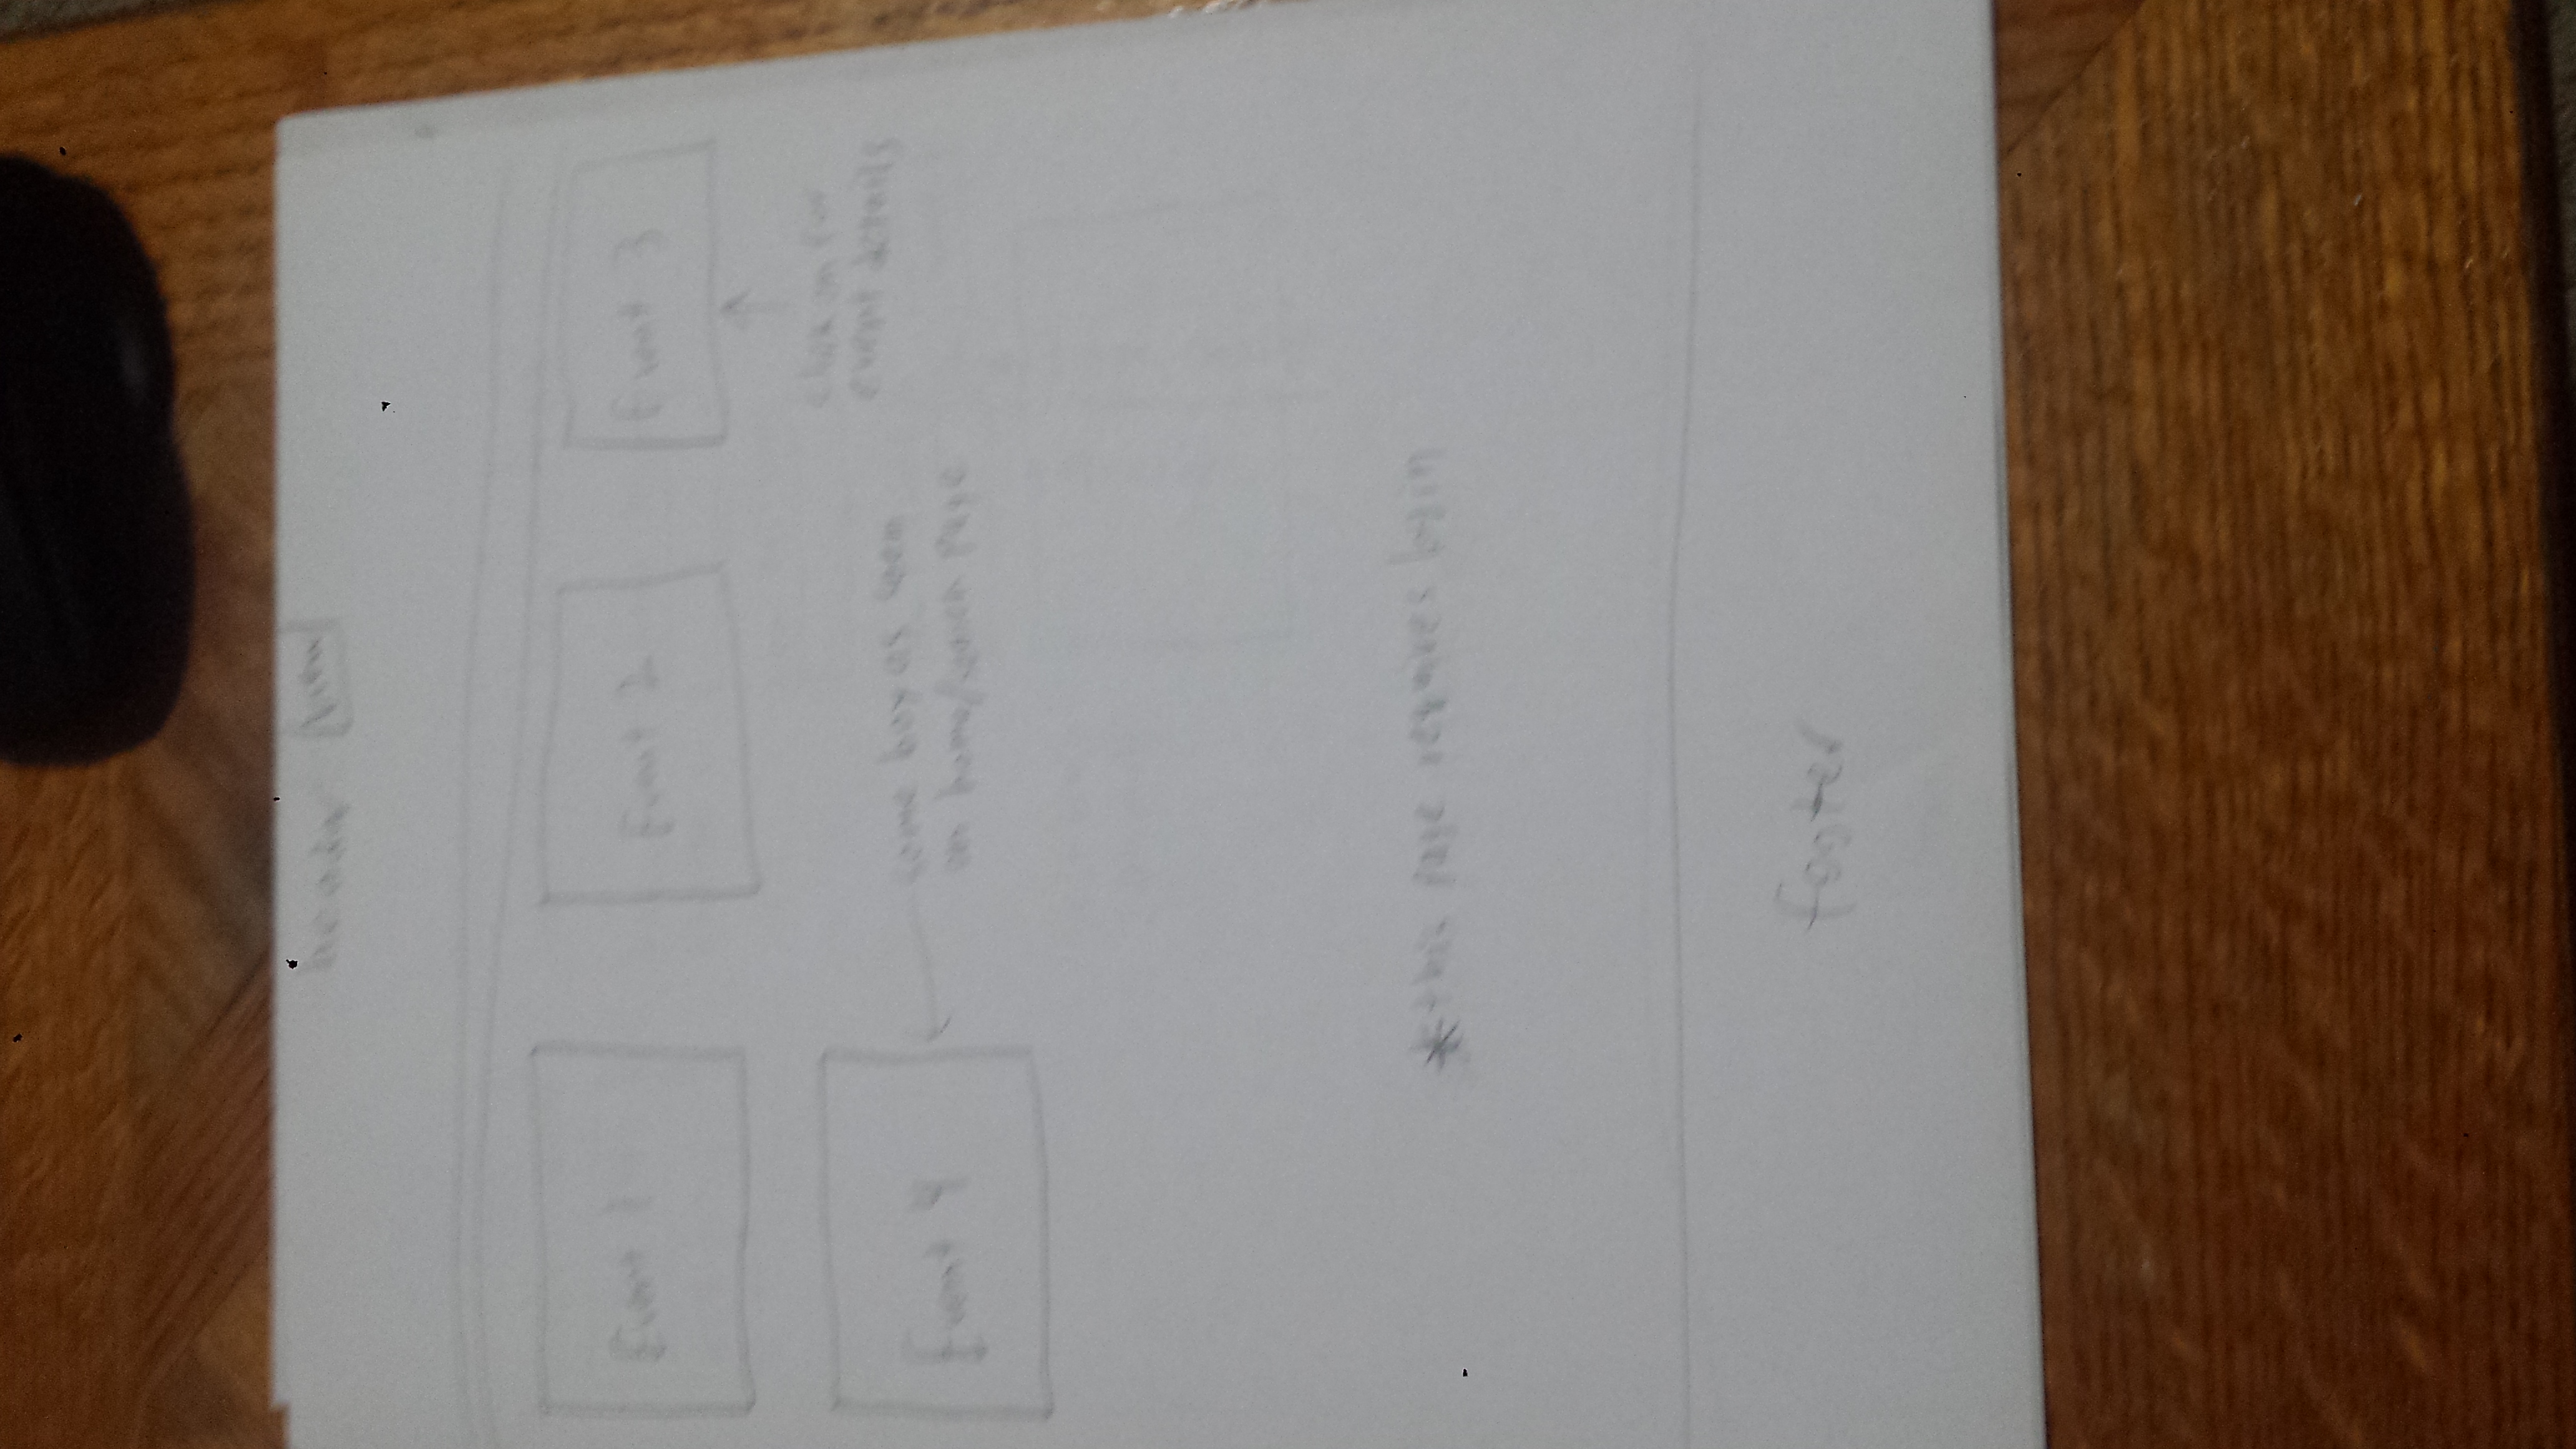 header
Event 1
Event 2
Event 3
click on for
event details
Event 4
same box as seen
on home/search page
*this page requires login
footer